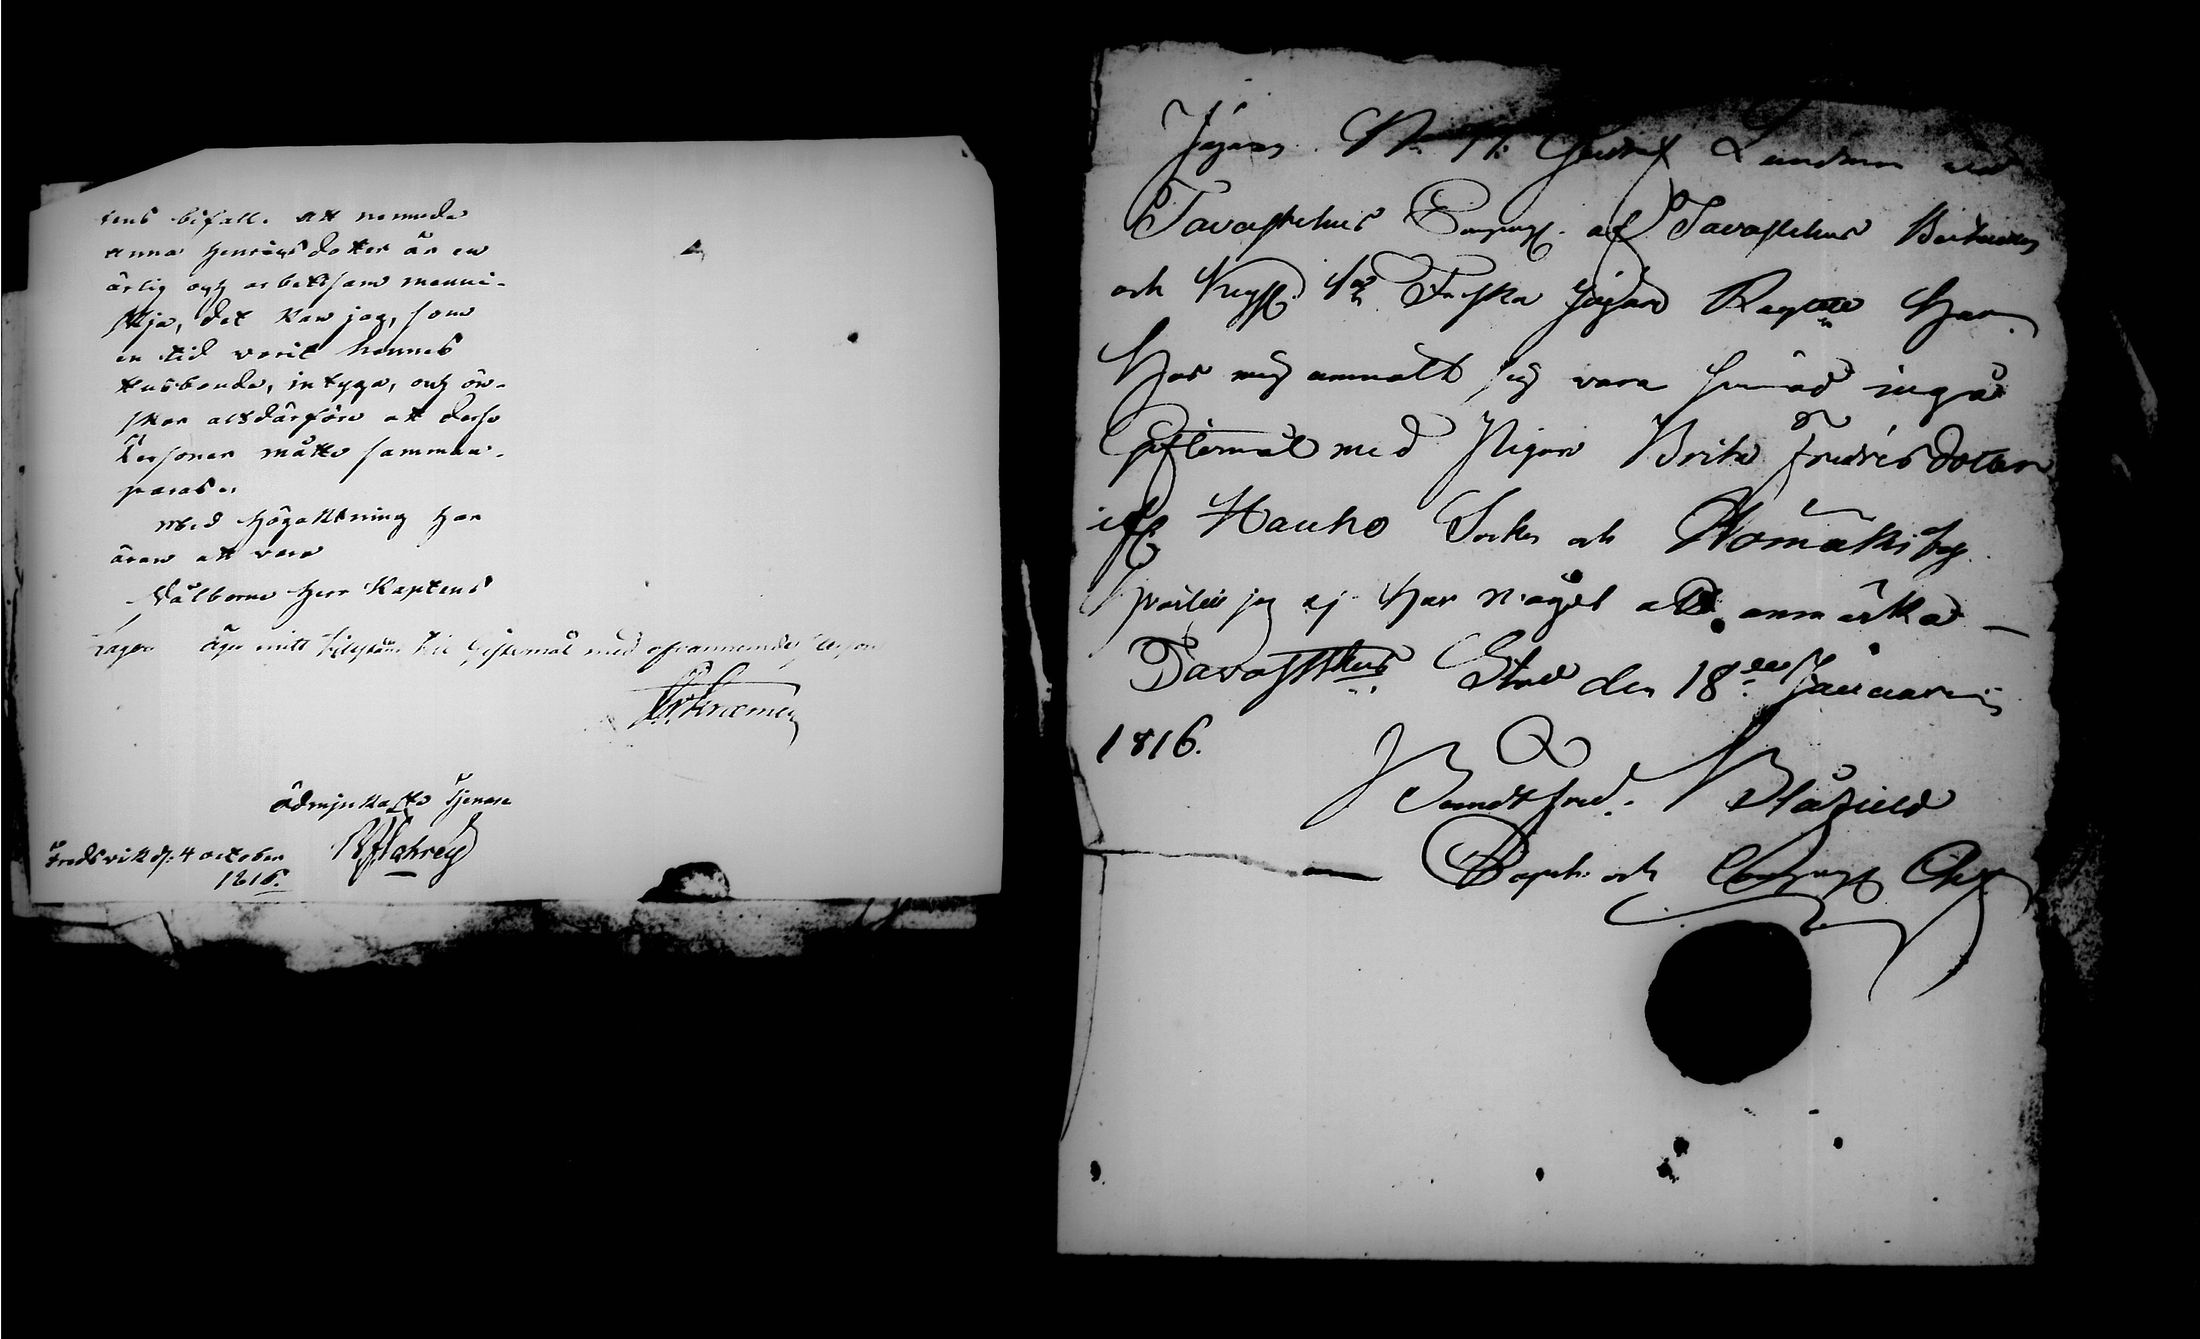 tens bifall. att nemnda
Anna Henricsdotter är en
ärlig och arbettsam menni-
skja, det kan jag, som
en tid varit hennes
Husbonde, intyga, och ön-
skar altdärföre att desse
Personer måtte samman-
paras.
Med Högaktning har
äran att vara
Välborne Herr Kaptens
Lagen äger mitt tillstånd till Giftermål med ofvannemde Person
ödmjukaste Tjenare
Fredsvik d. 4 october
1816.
Jägaren N. 11. Lundman vid
Tavastehus Compagn. af Tavastehus Bataillon
och Finska Jägare Regte Har
Hos mig anmält sig vara sinnad ingå
Giftermål med Pigan Brita Fredricsdotter
ifr Hauho Soken och by
hvartill jag ej Har något att anmärka —
Tavastehus Stad den 18de Januarii
1816.
Berndt Fred. Blåfield
Capit: och Compagn Chef